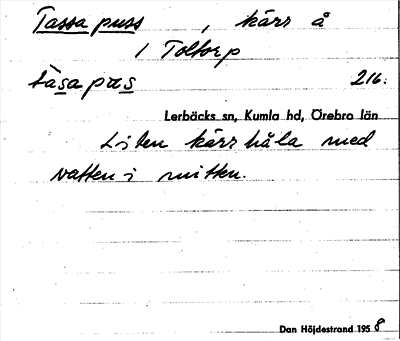 Tassa puss, kärr å
1 Toltorp
tàsa pɷs 216.
Lerbäcks sn, Kumla hd, Örebro län
Liten kärrhåla med
vatten i mitten.
Dan Höjdestrand 1958